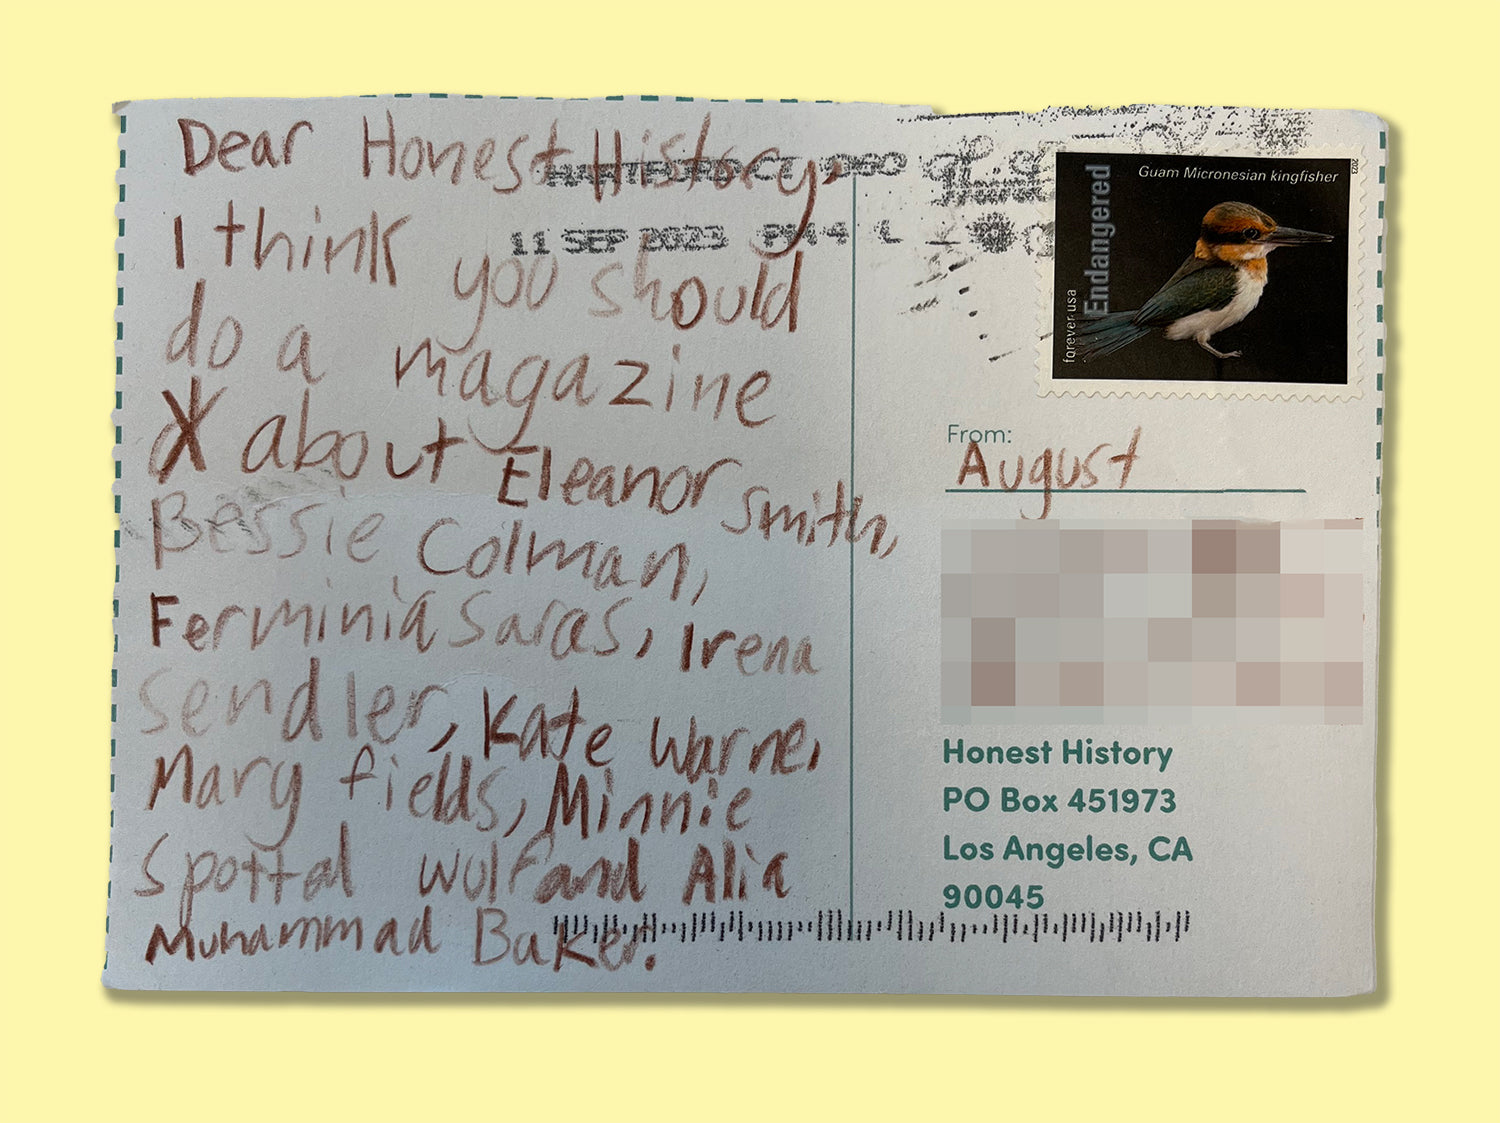 Dear Honest History,
I think you should
do a magazine
about Eleanor Smith,
Bessie Colman,
Ferminia Saras, Irena
Sendler, Kate Warne,
Mary fields, Minnie
Spottal wulf and Alia
Muhammad Baker.
11 SEP 2023 PM 4 L
Guam Micronesian kingfisher
2023
Endangered
forever usa
From:
August
Honest History
PO Box 451973
Los Angeles, CA
90045